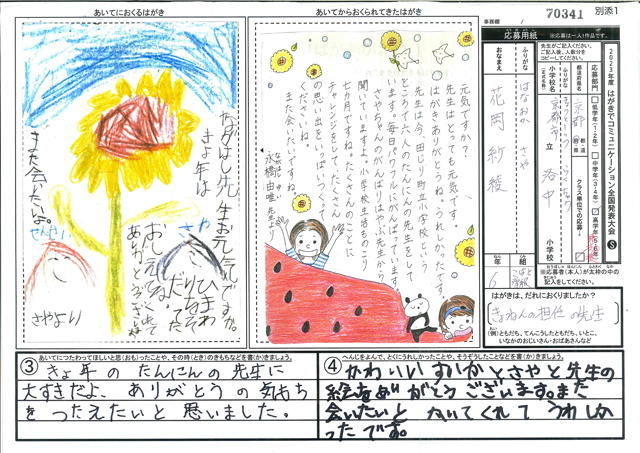 あいてにおくるはがき
ながはし先生お元気ですか。
きょ年は
ひまわ
りをそ
だてた
お
ありがとうござ
また会いたいよ。
さや
せんせい
さやより
あいてからおくられてきたはがき
元気ですか。
先生はとっても元気です。
はがきありがとうね。うれしかったです。
先生は今、田じり町立小学校という
ところで大人のたんにんの先生をして
います。毎日パワフルにがんばっています。
さやちゃんのがんばりは
聞いています。小学校生活ものこり
七カ月ですね。たくさんのことに
の思い出を
また会いたいですね。
永橋由唯先生より
70341
別添1
事務欄
応募用紙
※応募は一人1作品です。
2023年度 はがきでコミュニケーション全国発表大会 S
先生がご記入ください。
ご記入後、人数分を
コピーしてください。
応募部門
低学年(1・2年)
中学年(3・4年)
高学年(5・6年)
クラス単位での応募
都道府県名
京都
都 道 府 県
ふりがな
小学校名
(正式名称)
京都市 立 洛中 小学校
ふりがな
はなおか さや
おなまえ
花岡 紗綾
年
6
組
こばと学級
※応募者(本人)が太枠の中の
記入をしてください。
はがきは、だれにおくりましたか?
きょねんの担任の先生
(例)ともだち、てんこうしたともだち、いとこ、
いなかのおじいさん・おばあさんなど
③
あいてにつたわってほしいと思(おも)ったことや、その時(とき)のきもちなどを書(か)きましょう。
きょ年の たんにんの 先生に
大すきだよ、ありがとうの 気もち
を つたえたいと 思いました。
④
へんじをよんで、とくにうれしかったことや、そうぞうしたことなどを書(か)きましょう。
かわいい すいかとさやと先生の
絵をありがとうございます。また
会いたいと かいてくれて うれしか
ったです。